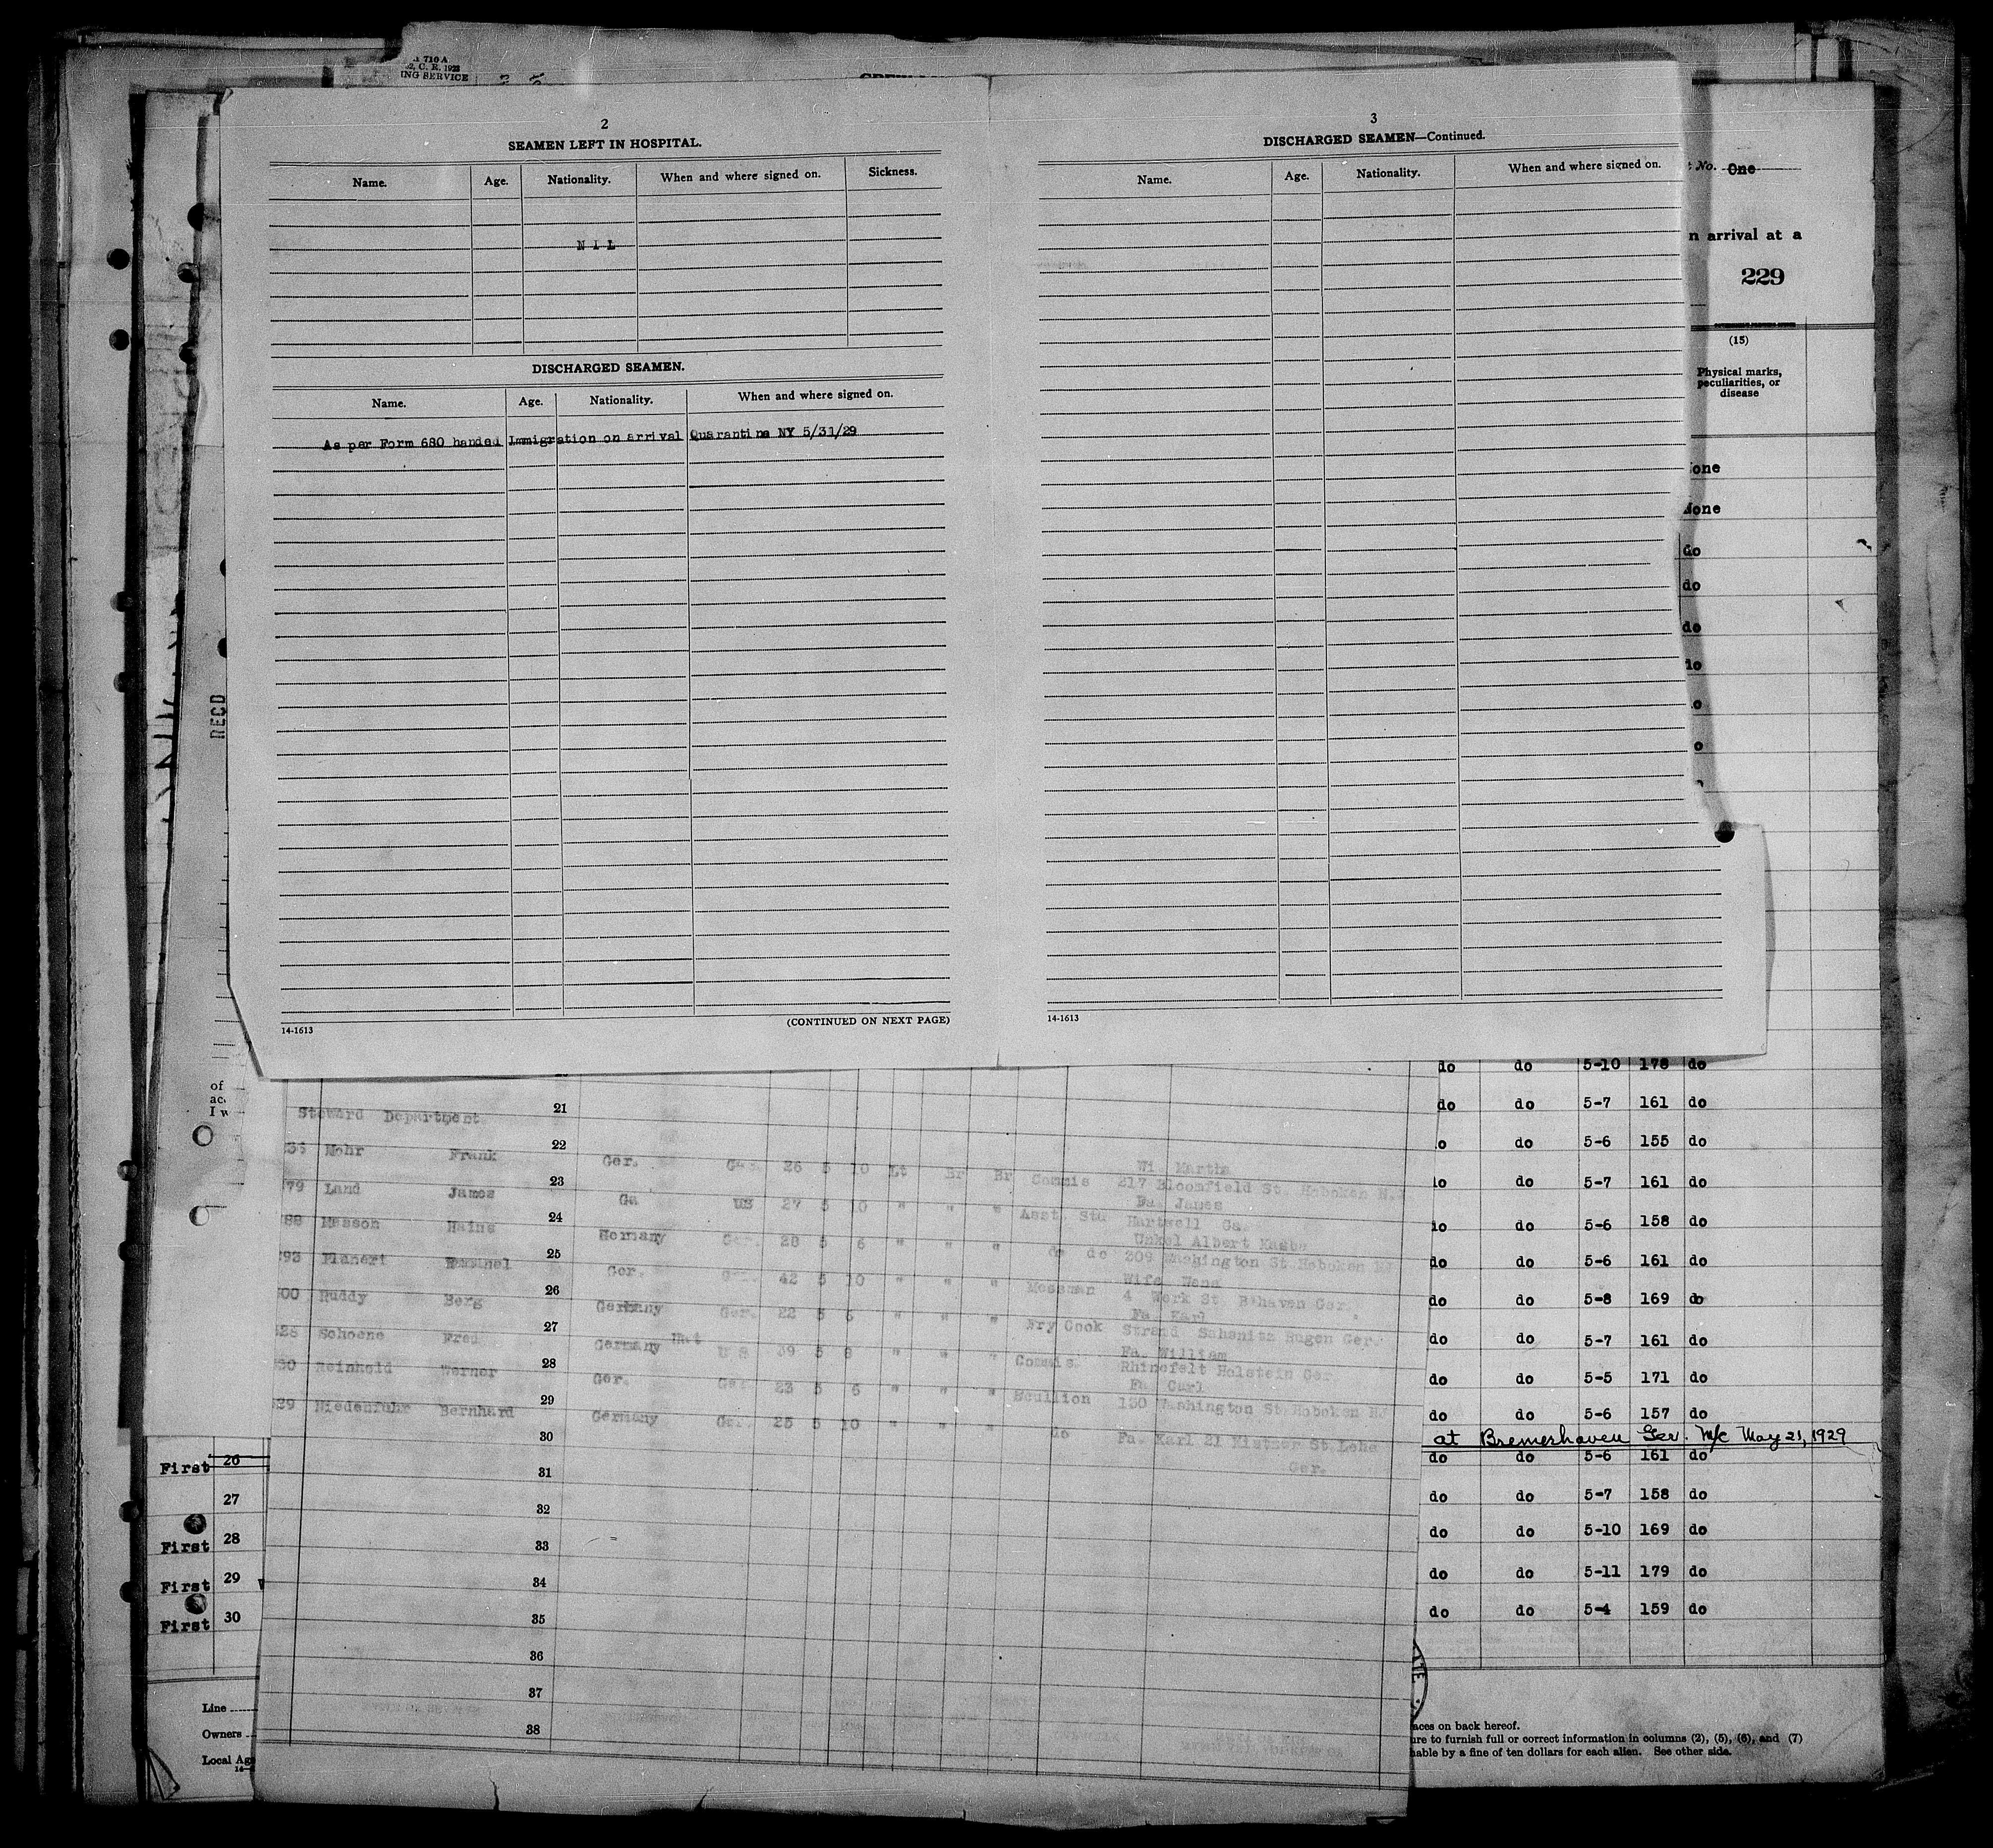 710 A
C. R. 1923
ING SERVICE
2
SEAMEN LEFT IN HOSPITAL.
Name. Age. Nationality. When and where signed on. Sickness.
N I L
DISCHARGED SEAMEN.
Name. Age. Nationality. When and where signed on.
As per Form 680 handed Immigration on arrival Quarantine NY 5/31/29
14-1613 (CONTINUED ON NEXT PAGE)
3
DISCHARGED SEAMEN—Continued.
Name. Age. Nationality. When and where signed on.
14-1613
No. One
n arrival at a
229
(15)
Physical marks,
peculiarities, or
disease
one
None
do
do
do
do
o
o
RECD
of
I w
do do 5-10 178 do
do do 5-7 161 do
o do 5-6 155 do
do do 5-7 161 do
do do 5-6 158 do
do do 5-6 161 do
do do 5-8 169 do
do do 5-7 161 do
do do 5-5 171 do
do do 5-6 157 do
at Bremerhaven Ger. M/c May 21, 1929
do do 5-6 161 do
do do 5-7 158 do
do do 5-10 169 do
do do 5-11 179 do
do do 5-4 159 do
Steward Department
21
22
Mohr Frank Ger. Ger. 26 5 10 Lt Br Br Commis Wi. Martha
217 Bloomfield St. Hoboken N.J
23
79 Land James Ga US 27 5 10 " " " Asst. Std Fa. James
Hartwell Ga.
24
88 Masson Heins Germany Ger. 28 5 6 " " " do do Unkel Albert
209 Washington St. Hoboken NJ
25
293 Planeri Ger. Ger. 42 5 10 " " " Messman Wife
4 Werk St. B'haven Ger.
26
00 Ruddy Berg Germany Ger. 22 5 6 " " " Fry Cook Fa. Karl
Strand Sahsnitz Rugen Ger.
27
28 Schoene Fred Germany Nat U S 39 5 8 " " " Commis Fa. William
Rhinefelt Holstein Ger.
28
30 Reinhold Werner Ger. Ger. 23 5 6 " " " Scullion Fa Carl
150 Washington St. Hoboken NJ
29
29 Niedenfuhr Bernhard Germany Ger. 25 5 10 " " " do Fa. Karl 21 St. Lehe
Ger.
30
31
32
33
34
35
36
37
38
First 26
27
First 28
First 29
First 30
Line
Owners
Local Age
aces on back hereof.
ure to furnish full or correct information in columns (2), (5), (6), and (7)
hable by a fine of ten dollars for each alien. See other side.